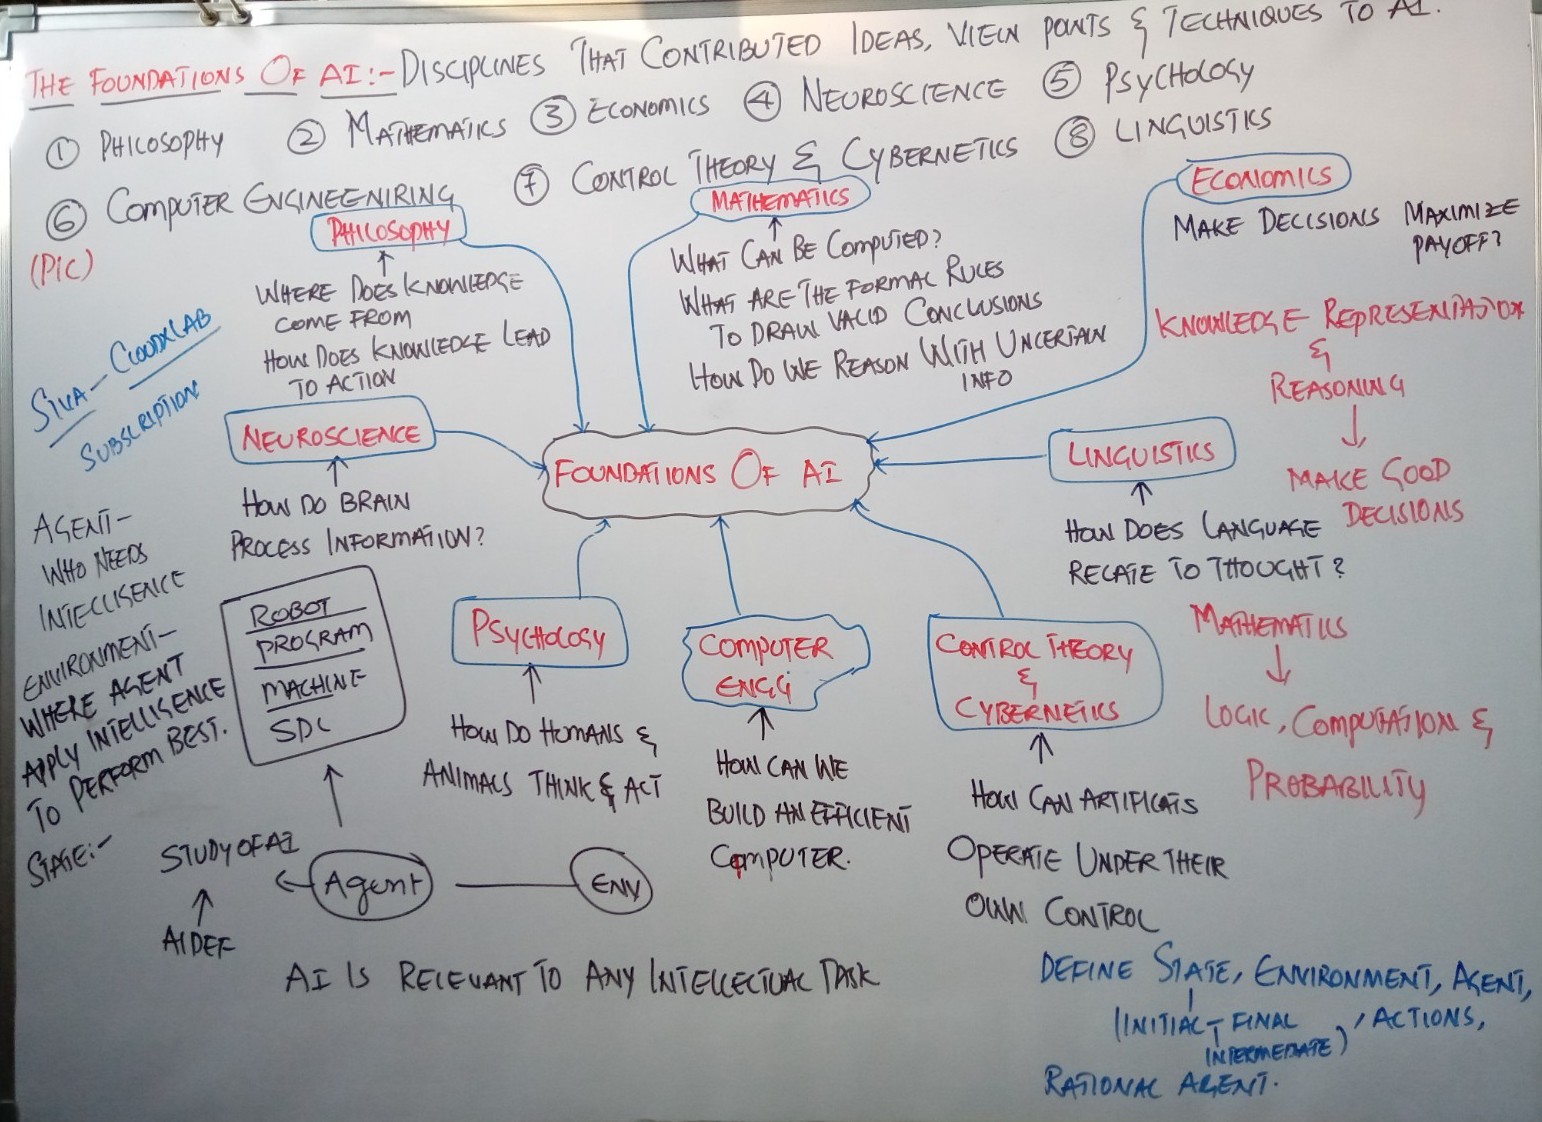 THE FOUNDATIONS OF AI:- DISCIPLINES THAT CONTRIBUTED IDEAS, VIEW POINTS & TECHNIQUES TO AI.
① PHILOSOPHY ② MATHEMATICS ③ ECONOMICS ④ NEUROSCIENCE ⑤ PSYCHOLOGY
⑥ COMPUTER ENGINEENIRING ⑦ CONTROL THEORY & CYBERNETICS ⑧ LINGUISTICS
(PIC)
PHILOSOPHY
WHERE DOES KNOWLEDGE
COME FROM
HOW DOES KNOWLEDGE LEAD
TO ACTION
MATHEMATICS
WHAT CAN BE COMPUTED?
WHAT ARE THE FORMAL RULES
TO DRAW VALID CONCLUSIONS
HOW DO WE REASON WITH UNCERTAIN
INFO
ECONOMICS
MAKE DECISIONS MAXIMIZE
PAYOFF?
KNOWLEDGE REPRESENTATION
&
REASONING
MAKE GOOD
DECISIONS
SIVA - CLOUDXLAB
SUBSCRIPTION
NEUROSCIENCE
HOW DO BRAIN
PROCESS INFORMATION?
FOUNDATIONS OF AI
LINGUISTICS
HOW DOES LANGUAGE
RELATE TO THOUGHT?
MATHEMATICS
LOGIC, COMPUTATION &
PROBABILITY
AGENT-
WHO NEEDS
INTELLIGENCE
ENVIRONMENT-
WHERE AGENT
APPLY INTELLIGENCE
TO PERFORM BEST.
STATE:-
ROBOT
PROGRAM
MACHINE
SDC
PSYCHOLOGY
HOW DO HUMANS &
ANIMALS THINK & ACT
COMPUTER
ENGG
HOW CAN WE
BUILD AN EFFICIENT
COMPUTER.
CONTROL THEORY
&
CYBERNETICS
HOW CAN ARTIFICATS
OPERATE UNDER THEIR
OWN CONTROL
STUDY OF AI
Agent
ENV
AI DEF
AI IS RELEVANT TO ANY INTELLECTUAL TASK
DEFINE STATE, ENVIRONMENT, AGENT,
(INITIAL - FINAL, ACTIONS,
INTERMEDIATE)
RATIONAL AGENT.